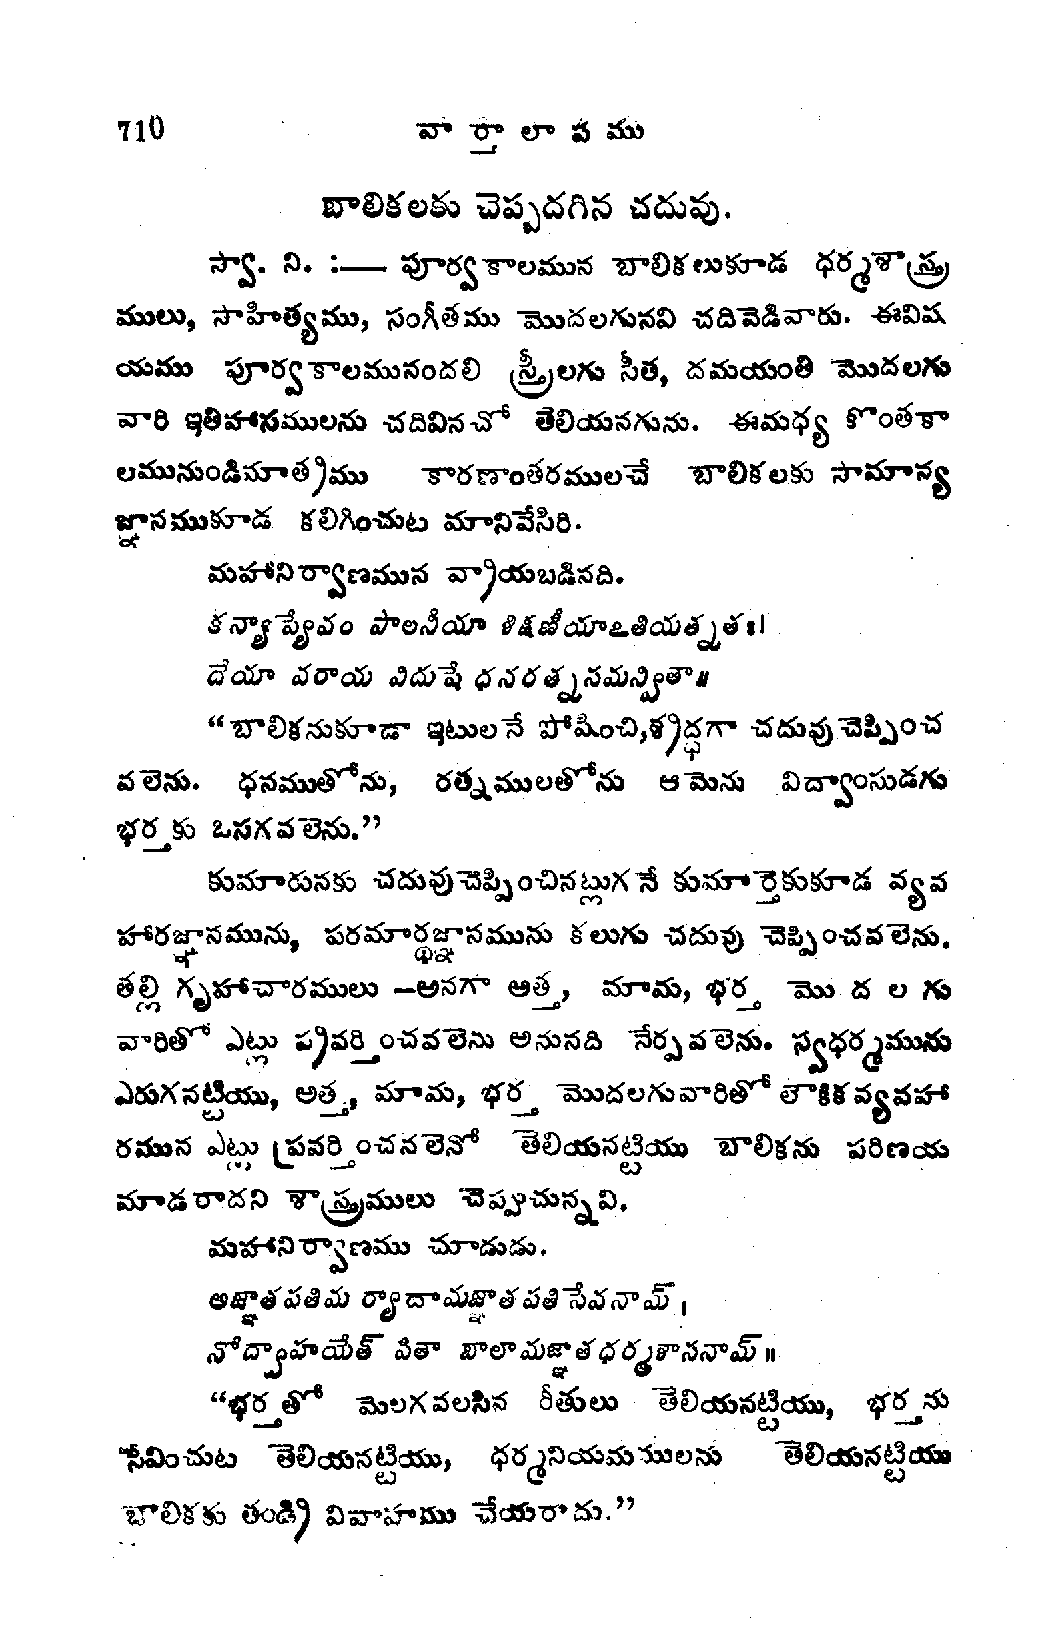 710 వా ర్తా లా ప ము
బాలికలకు చెప్పదగిన చదువు.
స్వా. ని. :— పూర్వకాలమున బాలికలుకూడ ధర్మశాస్త్ర
ములు, సాహిత్యము, సంగీతము మొదలగునవి చదివెడివారు. ఈవిష
యము పూర్వకాలమునందలి స్త్రీలగు సీత, దమయంతి మొదలగు
వారి ఇతిహాసములను చదివినచో తెలియనగును. ఈమధ్య కొంతకా
లమునుండిమాత్రము కారణాంతరములచే బాలికలకు సామాన్య
జ్ఞానముకూడ కలిగించుట మానివేసిరి.
మహానిర్వాణమున వ్రాయబడినది.
కన్యాప్యేవం పాలనీయా శిక్షణీయాఽతియత్నతః।
దేయా వరాయ విదుషే ధనరత్నసమన్వితా॥
“బాలికనుకూడా ఇటులనే పోషించి,శ్రద్ధగా చదువుచెప్పించ
వలెను. ధనముతోను, రత్నములతోను ఆమెను విద్వాంసుడగు
భర్తకు ఒసగవలెను.”
కుమారునకు చదువుచెప్పించినట్లుగనే కుమార్తెకుకూడ వ్యవ
హారజ్ఞానమును, పరమార్థజ్ఞానమును కలుగు చదువు చెప్పించవలెను.
తల్లి గృహాచారములు —అనగా అత్త, మామ, భర్త మొ ద ల గు
వారితో ఎట్లు ప్రవర్తించవలెను అనునది నేర్పవలెను. స్వధర్మమును
ఎరుగనట్టియు, అత్త, మామ, భర్త మొదలగువారితో లౌకికవ్యవహా
రమున ఎట్లు ప్రవర్తించవలెనో తెలియనట్టియు బాలికను పరిణయ
మాడరాదని శాస్త్రములు చెప్పుచున్నవి.
మహానిర్వాణము చూడుడు.
అజ్ఞాతపతిమ ర్యాదామజ్ఞాతపతిసేవనామ్ ।
నోద్వాహయేత్ పితా బాలామజ్ఞాతధర్మశాసనామ్॥
“భర్తతో మెలగవలసిన రీతులు తెలియనట్టియు, భర్తను
సేవించుట తెలియనట్టియు, ధర్మనియమములను తెలియనట్టియు
బాలికకు తండ్రి వివాహము చేయరాదు.”